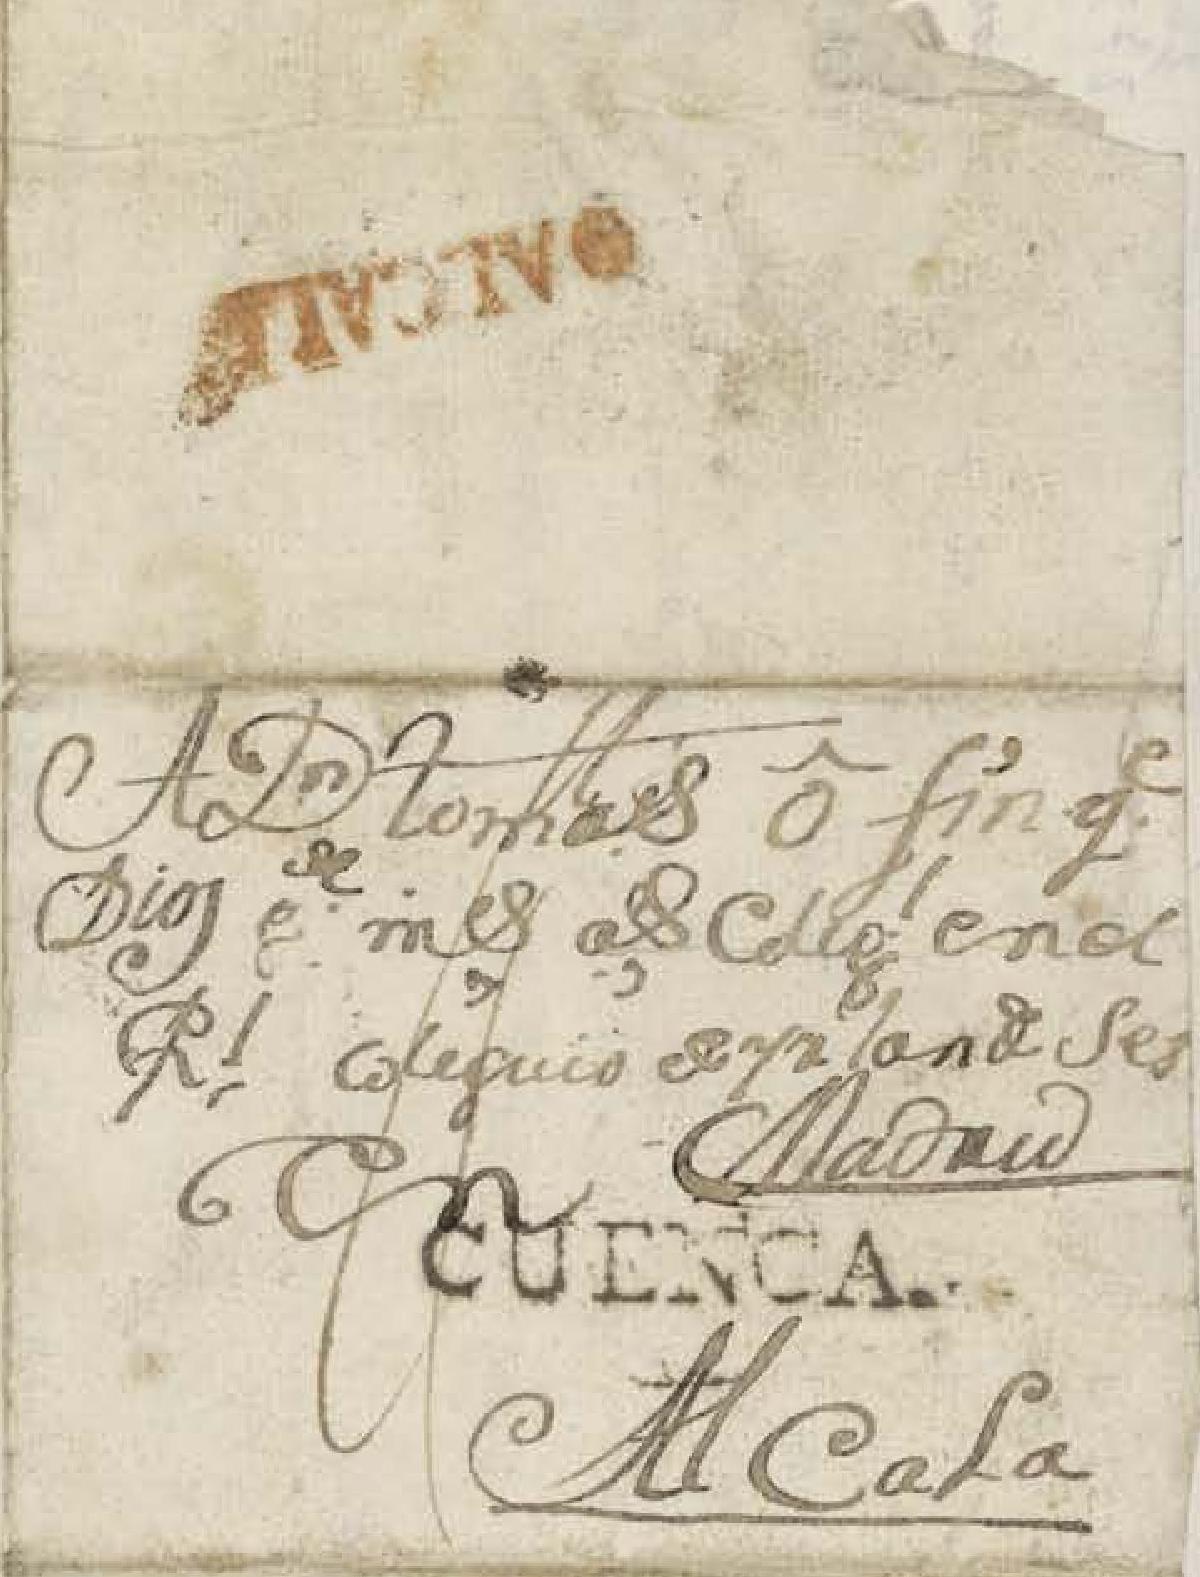 ALCALA
A Dn tomas ô fin q.e
Dios g.e m.s a.s Coleg.l en el
R.l coleguio de yrlandeses
Madrid
CUENCA.
Al Cala